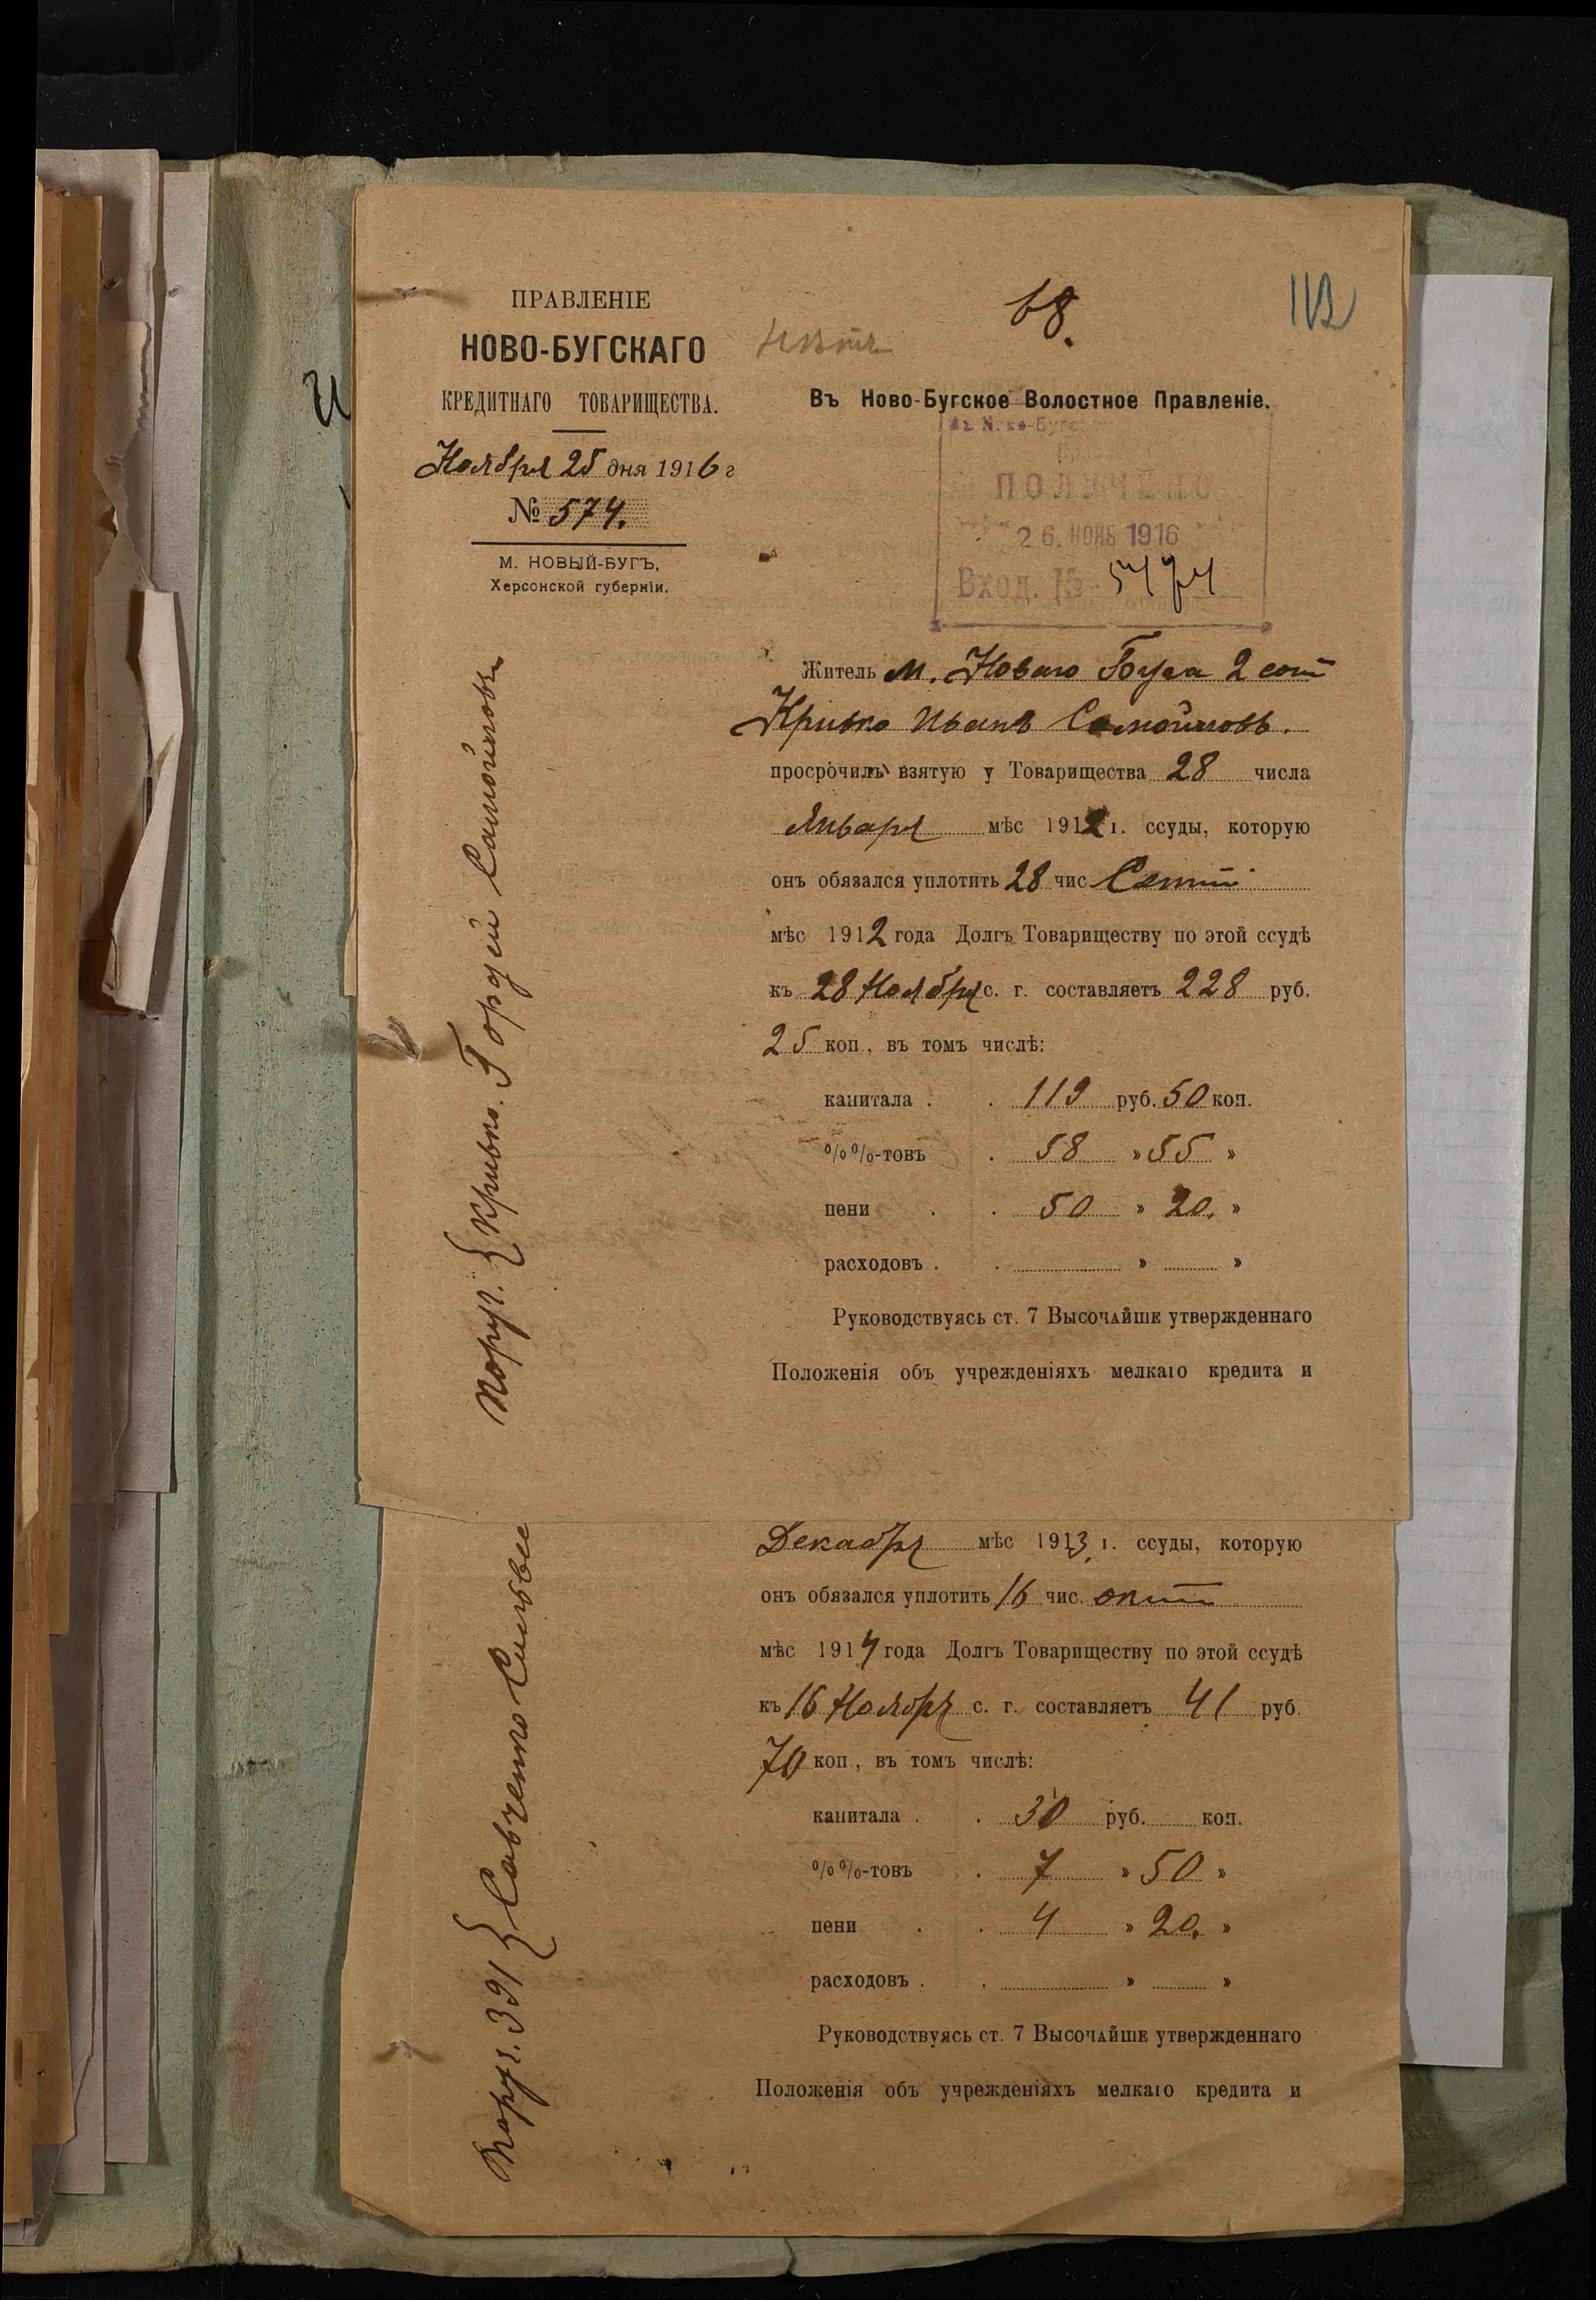 ПРАВЛЕНІЕ
НОВО-БУГСКАГО
КРЕДИТНАГО ТОВАРИЩЕСТВА.
Ноября 25 дня 1916 г
№ 574.
М. НОВЫЙ-БУГЪ,
Херсонской губерніи.
68.
112
Въ Ново-Бугское Волостное Правленіе.
ПОЛУЧЕНО
26. НОЯБ 1916
Вход. № 5474
Житель м. Новаго Буга 2 сот
Кривко Иванъ Самойловъ.
просрочилъ взятую у Товарищества 28 числа
Января мѣс 1912 г. ссуды, которую
онъ обязался уплотить 28 чис Сент
мѣс 1912 года Долгъ Товариществу по этой ссудѣ
къ 28 Ноября с. г. составляетъ 228 руб.
25 коп., въ томъ числѣ:
капитала . . 119 руб. 50 коп.
%%-товъ . 58 » 55 »
пени . . 50 » 20. »
расходовъ . . » »
Руководствуясь ст. 7 Высочайше утвержденнаго
Положенія объ учрежденіяхъ мелкаго кредита и
Поруч. { Кривко. Гордей Самойловъ
Декабря мѣс 1913 г. ссуды, которую
онъ обязался уплотить 16 чис. окт
мѣс 1914 года Долгъ Товариществу по этой ссудѣ
къ 16 Ноября с. г. составляетъ 41 руб.
70 коп., въ томъ числѣ:
капитала . . 30 руб. коп.
%%-товъ . 7 » 50 »
пени . . 4 » 20. »
расходовъ . . » »
Руководствуясь ст. 7 Высочайше утвержденнаго
Положенія объ учрежденіяхъ мелкаго кредита и
Поруч. 391 { Савченко